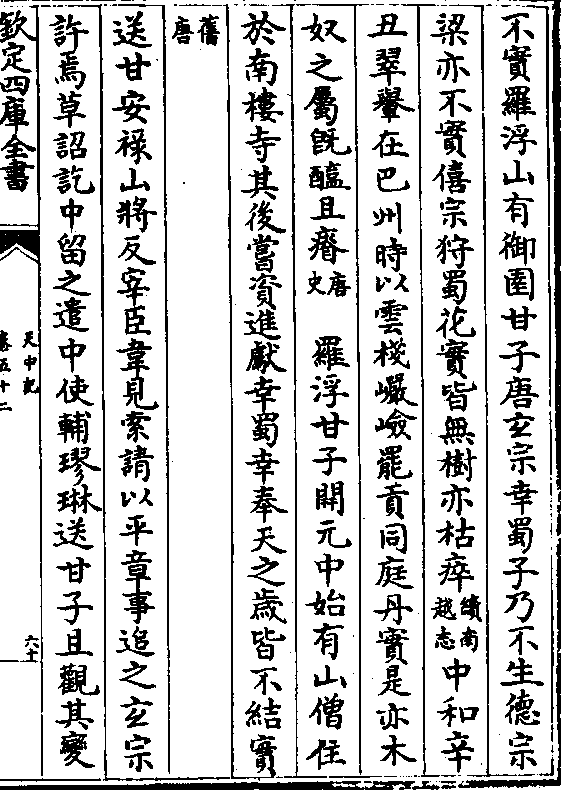 不實羅浮山有御園甘子唐玄宗幸蜀子乃不生德宗
梁亦不實僖宗狩蜀花實皆無樹亦枯瘁續南越志中和辛
丑翠轝在巴州時以雲棧巖嶮罷貢同庭丹實是亦木
奴之屬旣醯且瘠唐史羅浮甘子開元中始有山僧住
於南樓寺其後嘗資進獻幸蜀幸奉天之歲皆不結實
舊唐
送甘安祿山將反宰臣韋見索請以平章事追之玄宗
許焉草詔訖中留之遣中使輔璆琳送甘子且觀其變
欽定四庫全書
天中記
卷五十二
六十